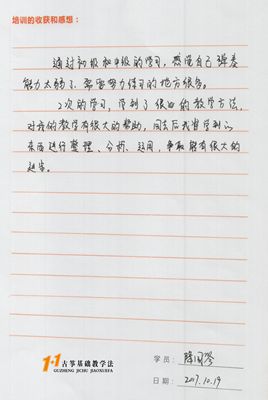 培训的收获和感想：
通过初级和中级的学习，感觉自己弹奏
能力太弱了，需要努力练习的地方很多。
2次的学习，学到了很好的教学方法，
对我的教学有很大的帮助，回去后我将学到的
东西进行整理、分析、运用，争取能有很大的
进步。
1+1 古筝基础教学法
GUZHENG JICHU JIAOXUEFA
学员：陈
日期：2017.10.19